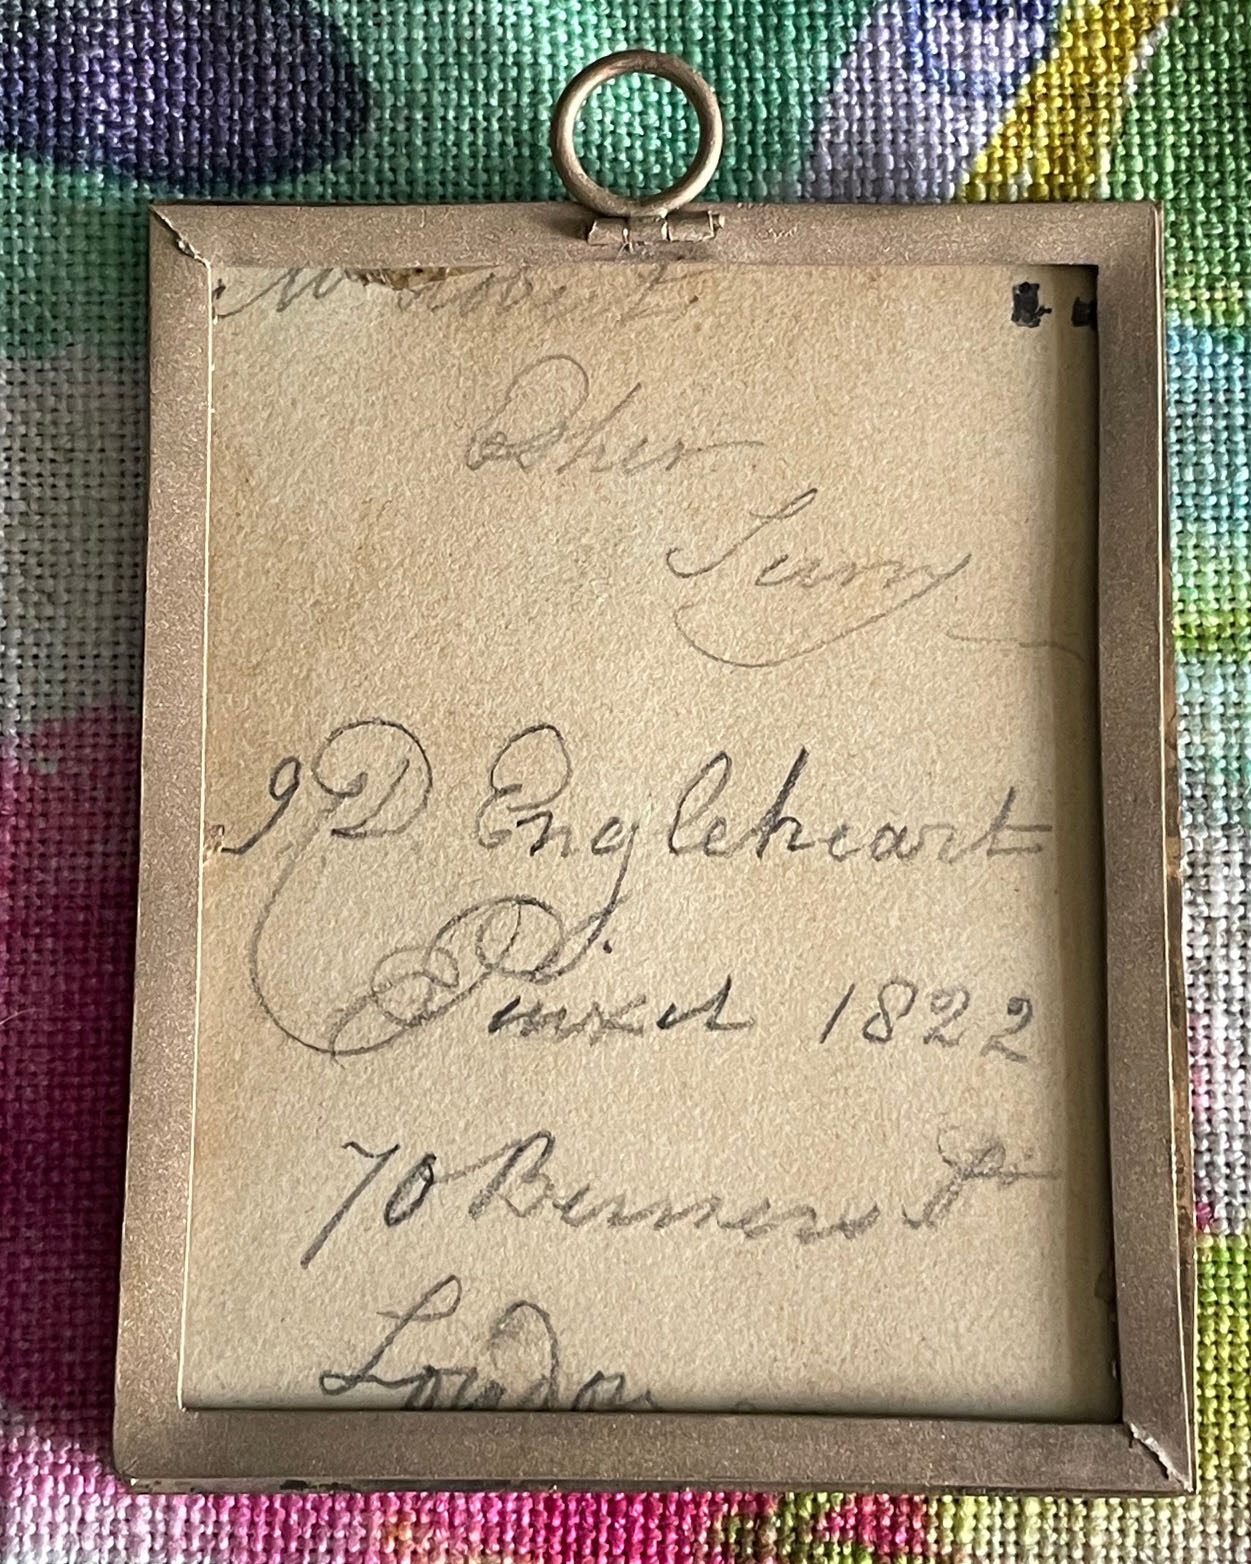 Esher
Surry
JCD Engleheart
Pinxit 1822
70 Berners St
London